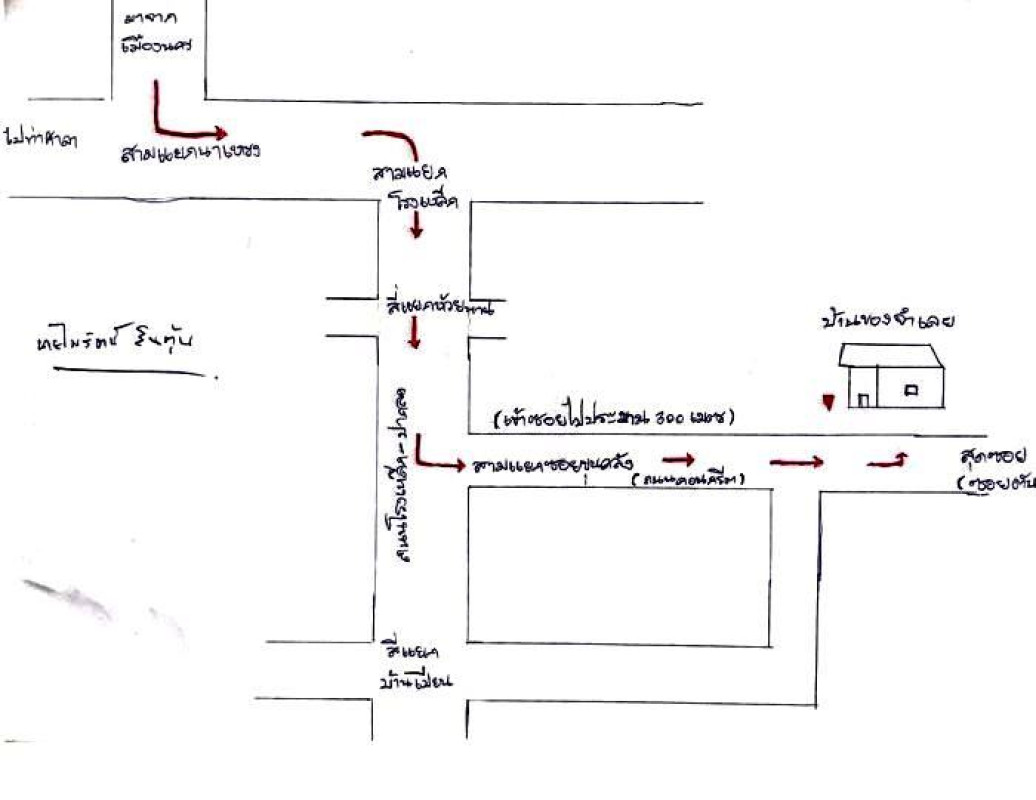 มาจาก
เมืองนคร
ไปท่าศาลา
สามแยกนาเหรง
สามแยก
โรงเหล็ก
สี่แยกห้วยพาน
บ้านของจำเลย
(เข้าซอยไปประมาณ 300 เมตร)
สามแยกซอยขุนคลัง
(ถนนคอนกรีต)
สุดซอย
(ซอยตัน
ถนนโรงเหล็ก-ปากลง
สี่แยก
บ้านเปียน